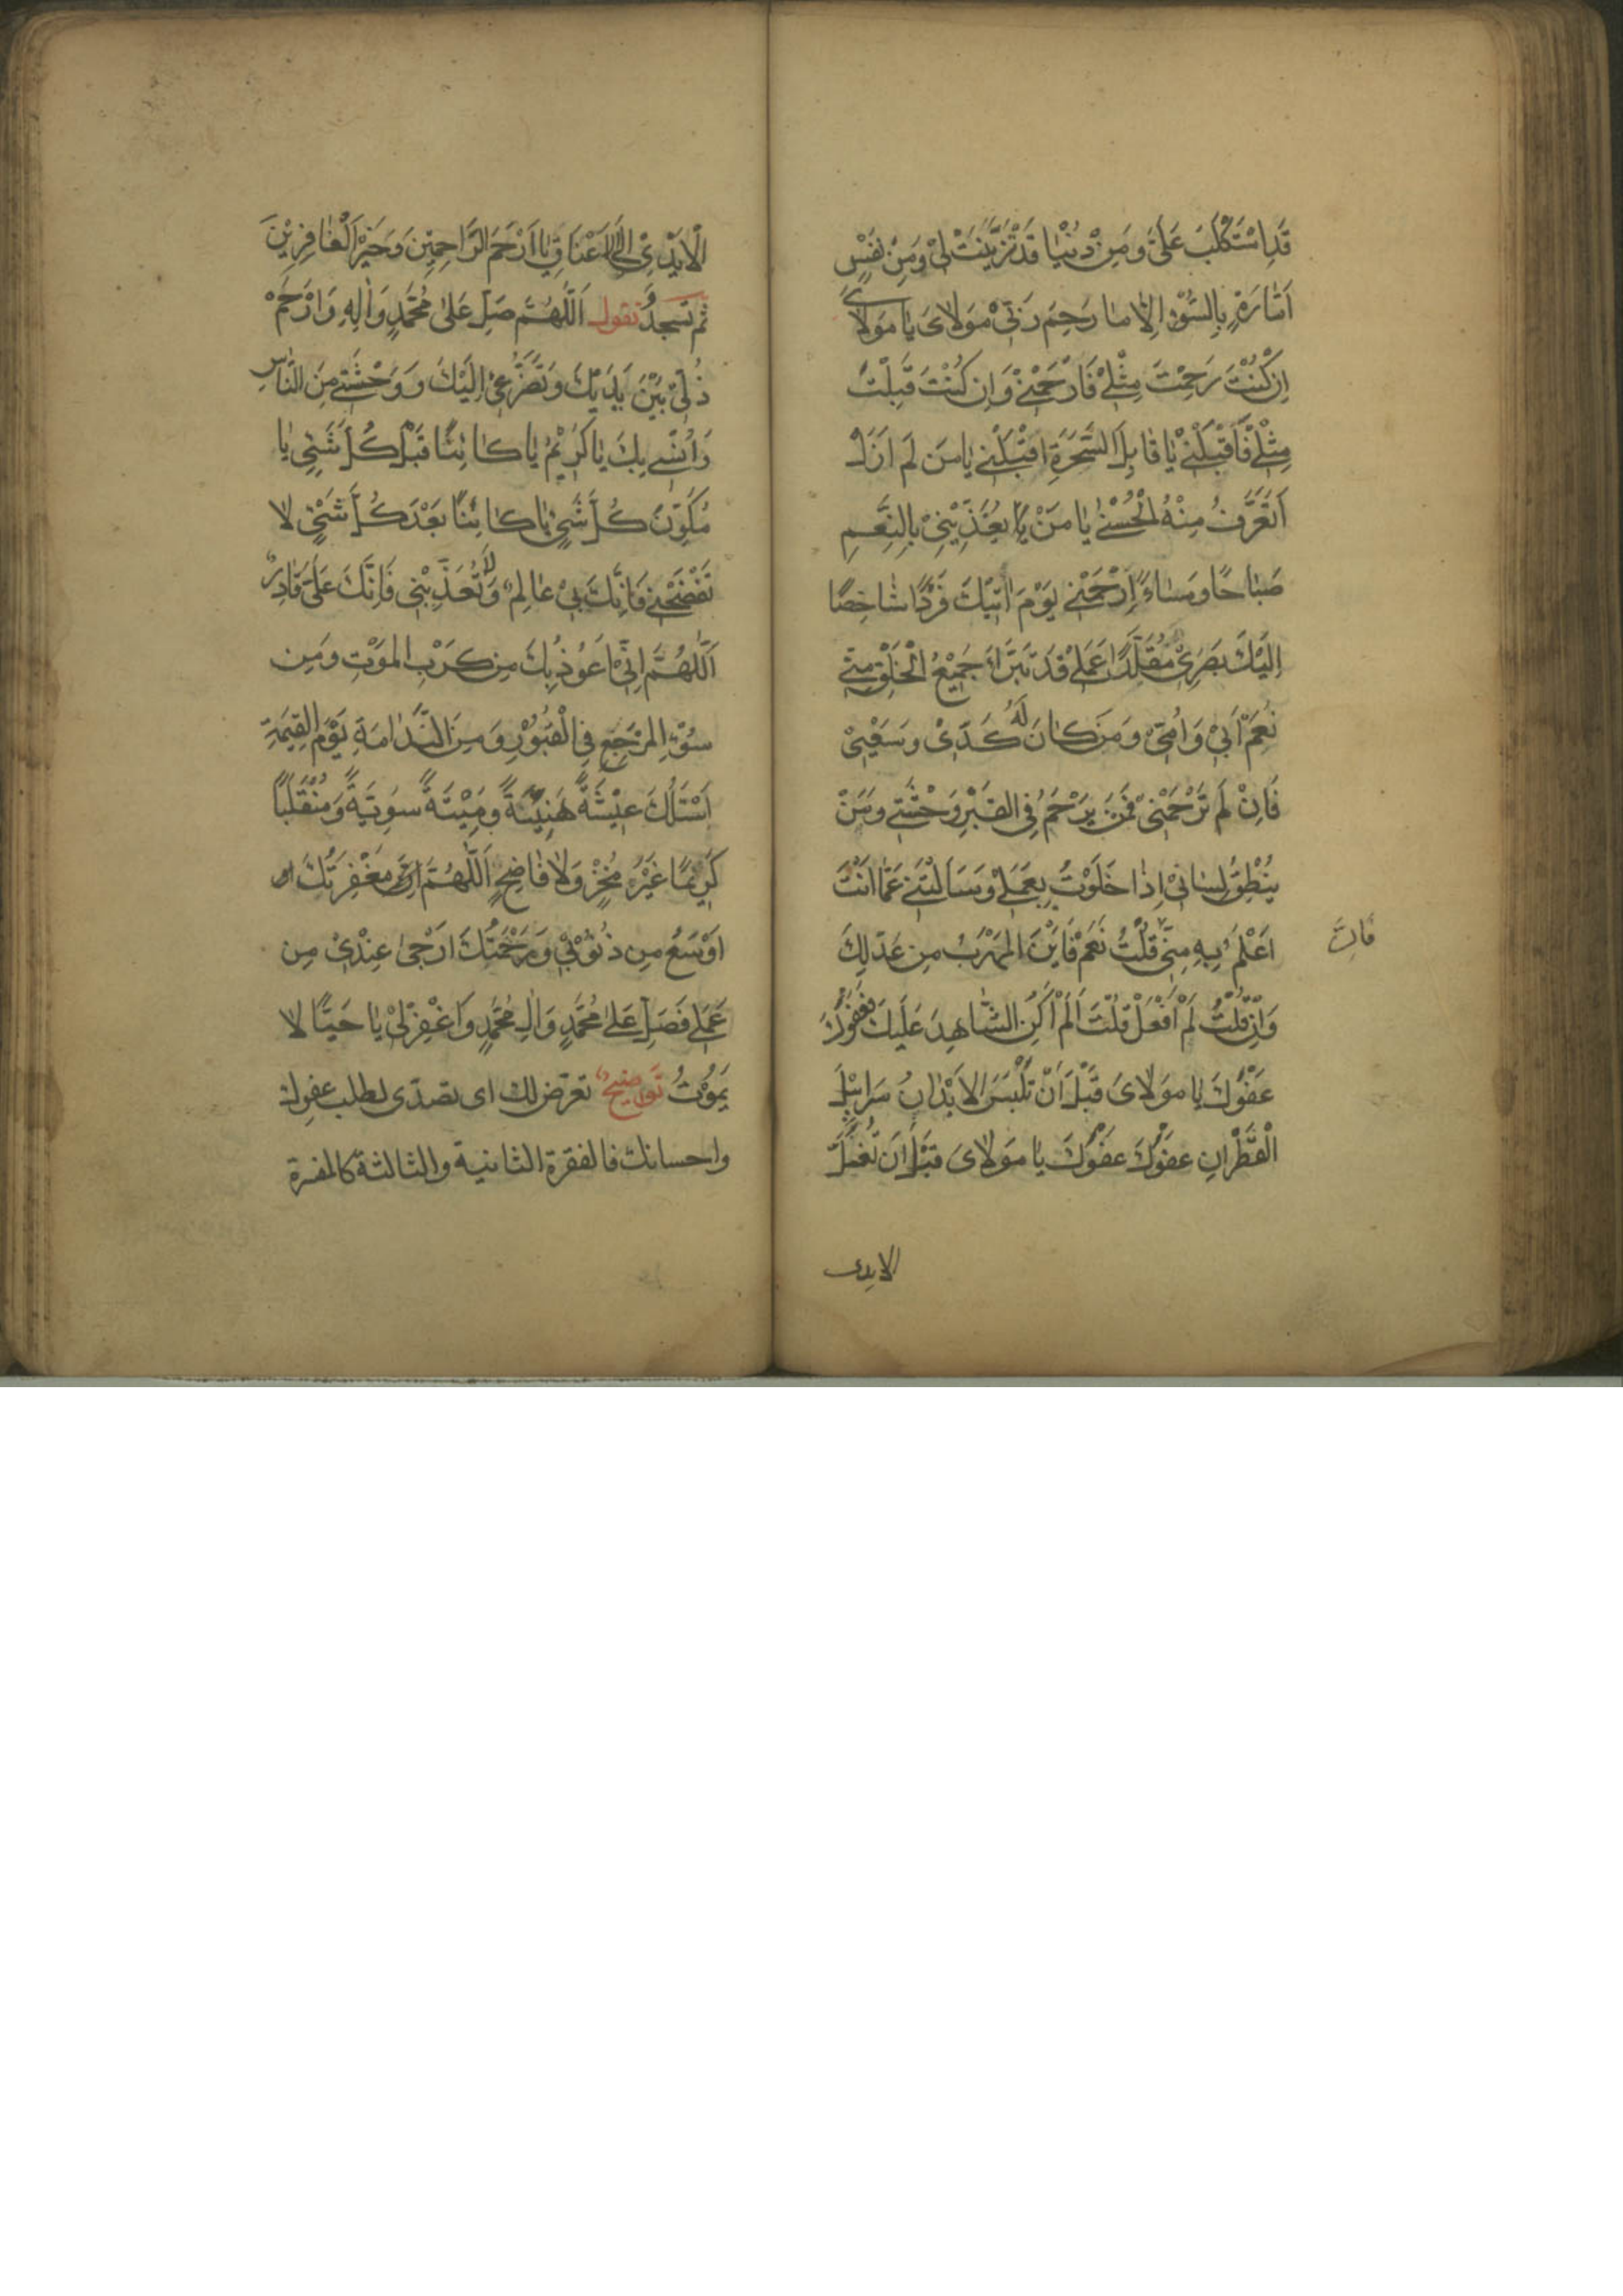 قَدِ اسْتَكْلَبَ عَلَيَّ وَمِنْ دُنْيَا قَدْ تَزَيَّنَتْ لِيْ وَمِنْ نَفْسٍ
اَمَّارَةٍ بِالسُّوْءِ اِلَّا مَا رَحِمَ رَبّيْ مَوْلَايَ يَا مَوْلَايَ
اِنْ كُنْتَ رَحِمْتَ مِثْلِيْ فَارْحَمْنِيْ وَاِنْ كُنْتَ قَبِلْتَ
مِثْلِيْ فَاَقْبَلْنِيْ يَا قَابِلَ السَّحَرَةِ اقْبَلْنِي يَا مَنْ لَمْ اَزَلْ
اَتَعَرَّفُ مِنْهُ الْحُسْنٰى يَا مَنْ يُعَذِّيْنِيْ بِالنِّعَمِ
صَبَاحًا وَمَسَاءً اِرْحَمْنِي يَوْمَ اٰتِيْكَ فَرْدًا شَاخِصًا
اِلَيْكَ بَصَرِيْ مُقَلَّدًا عَمَلِيْ قَدْ تَبَرَّاَ جَمِيْعُ الْخَلْقِ مِنّي
نَعَمْ اَبِيْ وَاُمّيْ وَمَنْ كَانَ لَهُ كَدّيْ وَسَعْيِيْ
فَاِنْ لَمْ تَرْحَمْنِيْ فَمَنْ يَرْحَمُ فِي القَبْرِ وَحْشَتِي وَمَنْ
يُنْطِقُ لِسَانِيْ اِذَا خَلَوْتُ بِعَمَلِيْ وَسَاَلْتَنِي عَمَّا اَنْتَ
اَعْلَمُ بِهِ مِنّيْ قُلْتُ نَعَمْ فَاَيْنَ المَهْرَبُ مِنْ عَدْلِكَ
فَاِنْ
وَاِنْ قُلْتُ لَمْ اَفْعَلْ قُلْتَ اَلَمْ اَكُنِ الشَّاهِدَ عَلَيْكَ فَعَفْوَكَ
عَفْوَكَ يَا مَوْلَايَ قَبْلَ اَنْ تَلْبَسَ الاَبْدَانُ سَرَابِيْلَ
الْقَطْرَانِ عَفْوَكَ عَفْوَكَ يَا مَوْلَايَ قَبْلَ اَنْ تُغَلَّ
الايدى
الْاَيْدِيْ اِلَى الْاَعْنَاقِ يَا اَرْحَمَ الرَّاحِمِيْنَ وَخَيْرَ الْغَافِرِيْنَ
ثم تسجد وتقول اَللّٰهُمَّ صَلِّ عَلٰى مُحَمَّدٍ وَاٰلِهِ وَارْحَمْ
ذُلّيْ بَيْنَ يَدَيْكَ وَتَضَرُّعِيْ اِلَيْكَ وَوَحْشَتِي مِنَ النَّاسِ
وَاُنْسِي بِكَ يَا كَرِيْمُ يَا كَائِنًا قَبْلَ كُلِّ شَيْءٍ يَا
مُكَوِّنَ كُلِّ شَيْءٍ يَا كَائِنًا بَعْدَ كُلِّ شَيْءٍ لَا
تَفْضَحْنِي فَاِنَّكَ بِيْ عَالِمٌ وَلَا تُعَذِّبْنِي فَاِنَّكَ عَلَيَّ قَادِرٌ
اَللّٰهُمَّ اِنّيْ اَعُوْذُ بِكَ مِنْ كَرْبِ المَوْتِ وَمِنْ
سُوْءِ المَرْجِعِ فِي الْقُبُوْرِ وَمِنَ النَّدَامَةِ يَوْمَ القِيٰمَةِ
اَسْئَلُكَ عِيْشَةً هَنِيْئَةً وَمِيْتَةً سَوِيَّةً وَمُنْقَلَبًا
كَرِيْمًا غَيْرَ مُخْزٍ وَلَا فَاضِحٍ اَللّٰهُمَّ مَغْفِرَتُكَ
اَوْسَعُ مِنْ ذُنُوْبِيْ وَرَحْمَتُكَ اَرْجٰى عِنْدِيْ مِنْ
عَمَلِي فَصَلِّ عَلٰى مُحَمَّدٍ وَاٰلِ مُحَمَّدٍ وَاغْفِرْ لِيْ يَا حَيًّا لَا
يَمُوْتُ توضيح تعرّض لك اى تصدّى لطلب عفوك
واحسانك فالفقرة الثانية والثالثة كالمفسرة